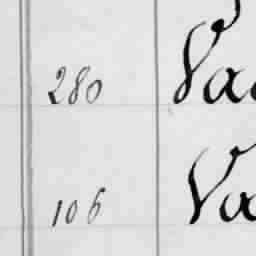 280 Va
106 Vo